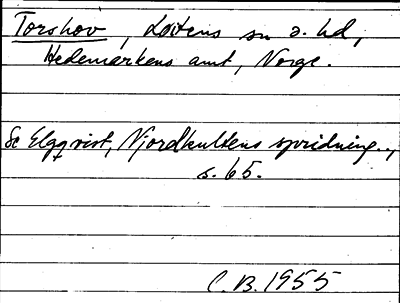 Torshov, Løtens sn o. hd,
Hedemarkens amt, Norge.
Se Elgqvist, Njordkultens spridning..,
s. 65.
C.B. 1955